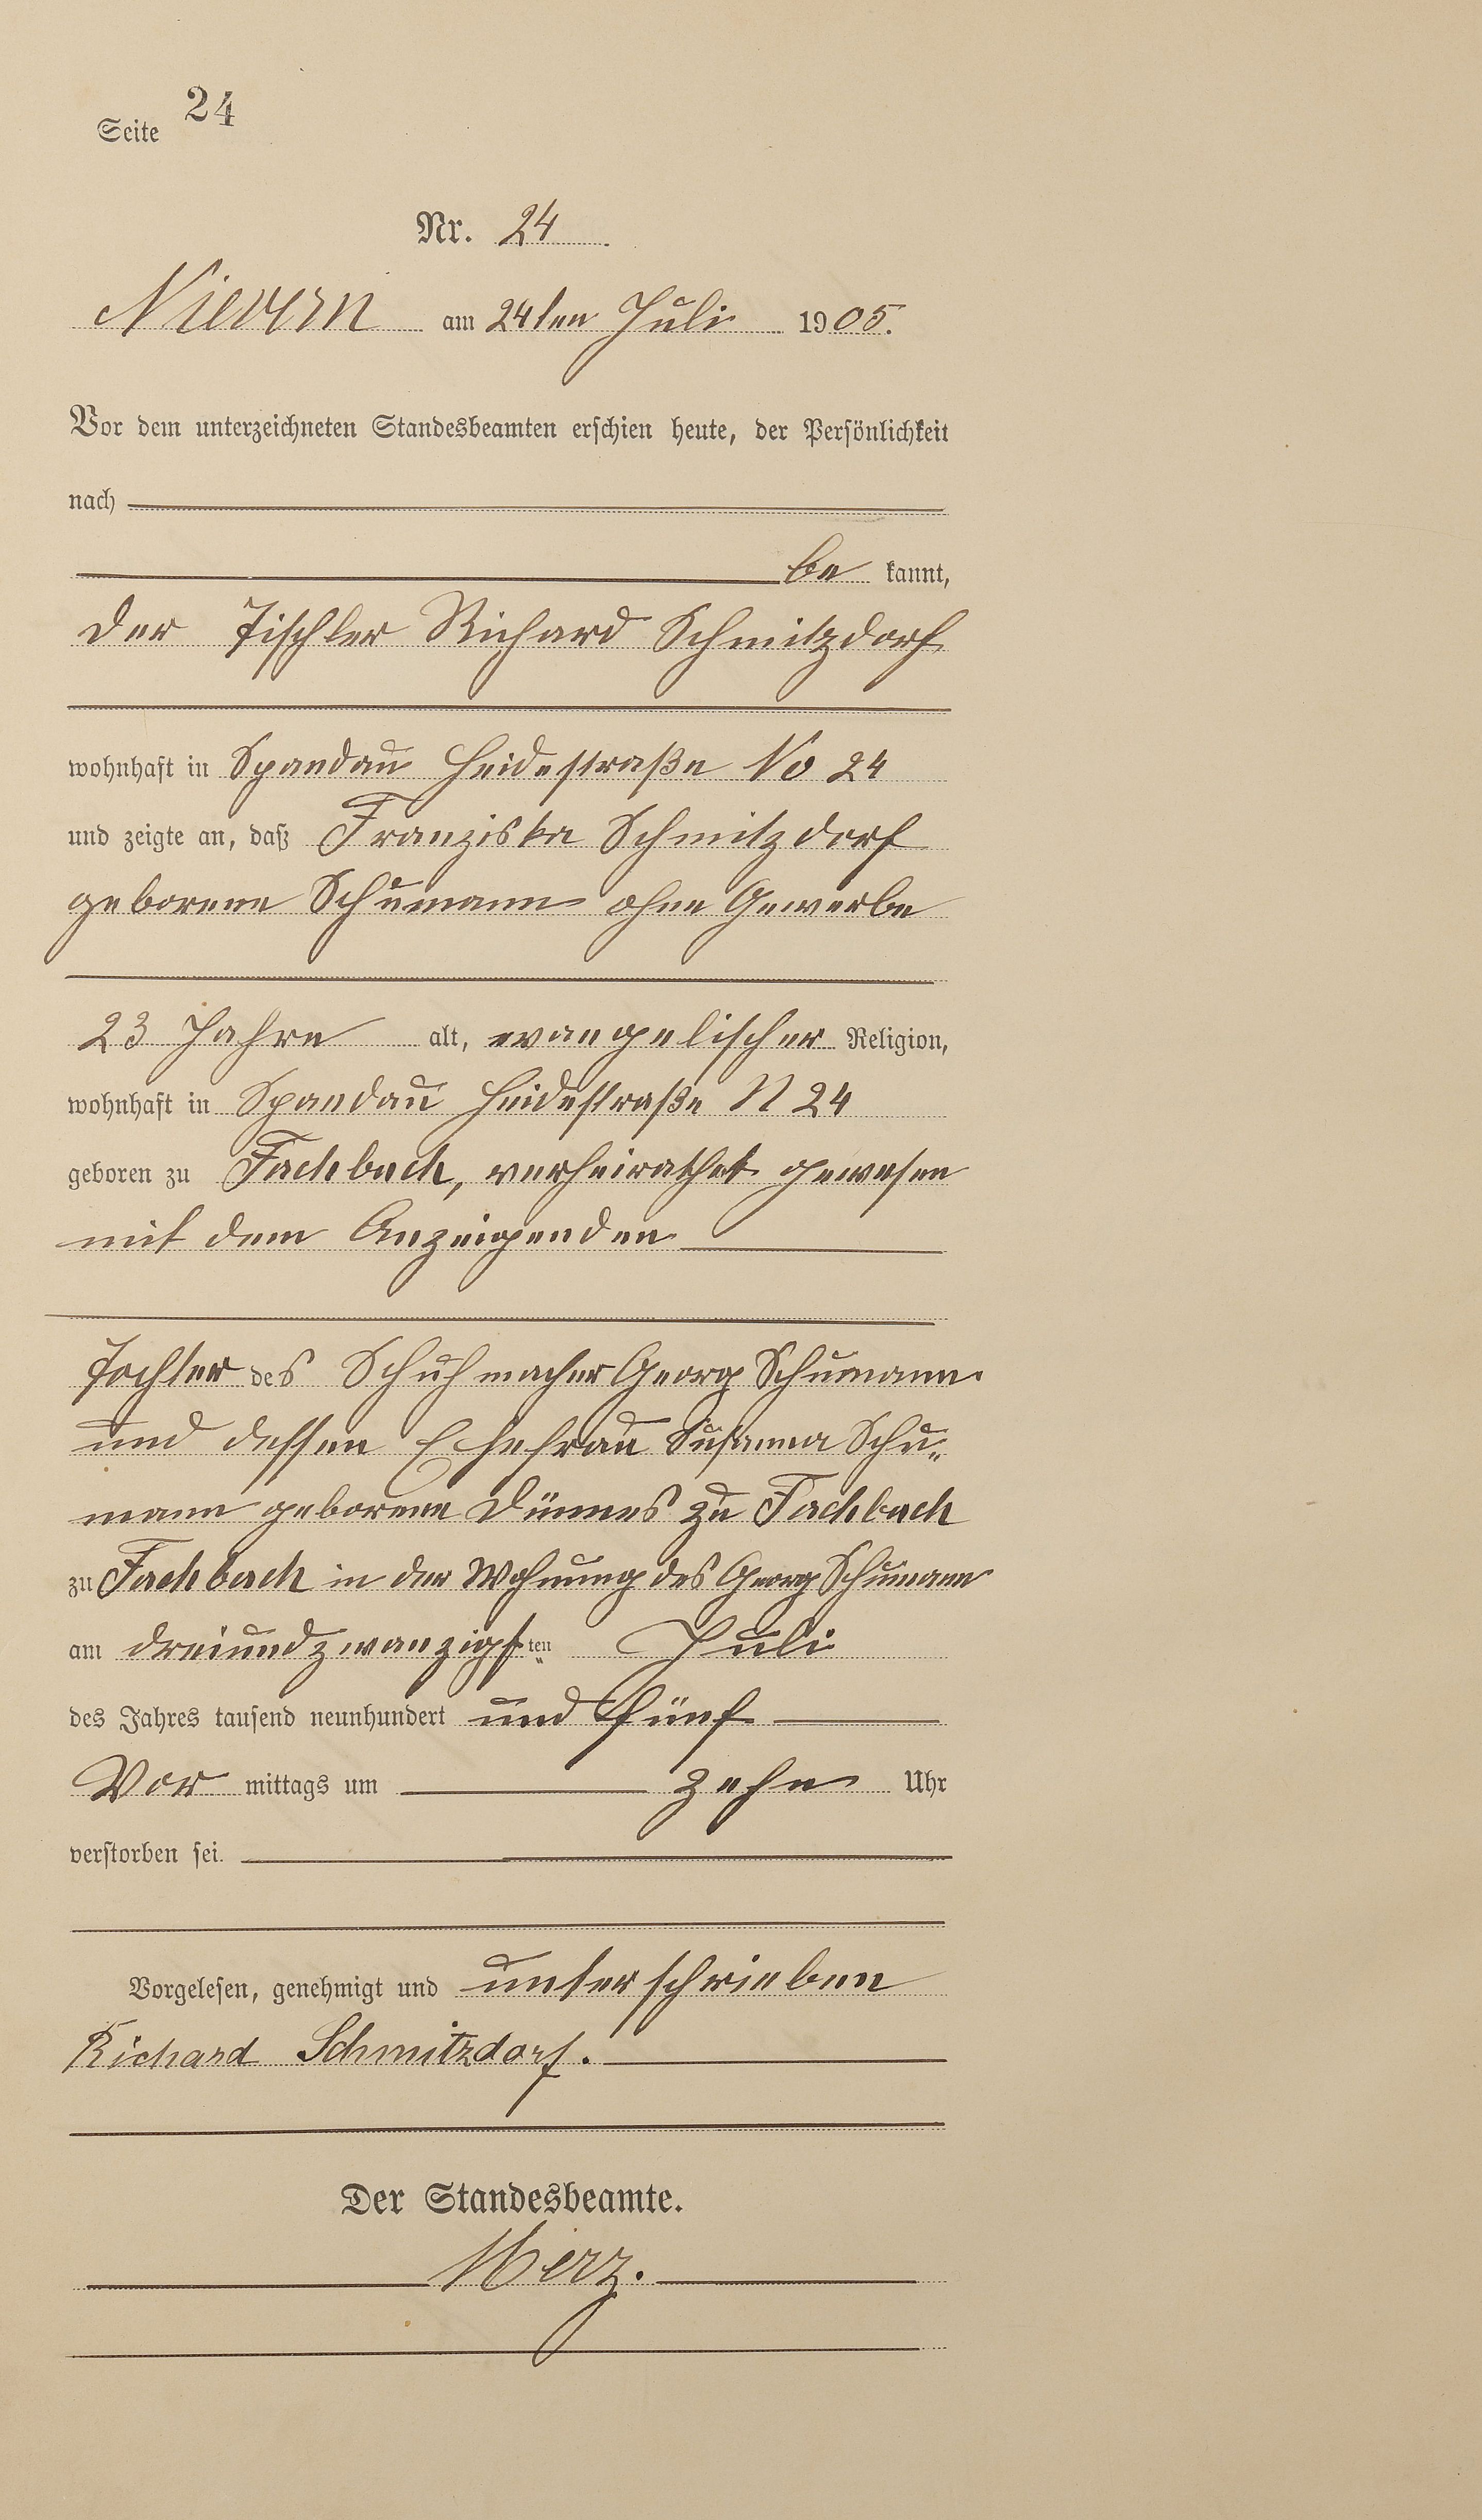 Seite 24
Nr. 24
Nievern am 24ten Juli 1905.
Vor dem unterzeichneten Standesbeamten erschien heute, der Persönlichkeit
nach
be kannt,
der Tischler Richard Schmitzdorf
wohnhaft in Spandau Heidestraße No 24
und zeigte an, daß Franziska Schmitzdorf
geborene Schumann ohne Gewerbe
23 Jahre alt, evangelischer Religion,
wohnhaft in Spandau Heidestraße N 24
geboren zu Fachbach, verheirathet gewesen
mit dem Anzeigenden
Tochter des Schuhmacher Georg Schumann
und dessen Ehefrau Susanna Schu„
mann geborene Dünnes zu Fachbach
zu Fachbach in der Wohnung des Georg Schumann
am dreiundzwanzigsten Juli
des Jahres tausend neunhundert und fünf
Vor mittags um zehn Uhr
verstorben sei.
Vorgelesen, genehmigt und unterschrieben
Richard Schmitzdorf.
Der Standesbeamte.
Merz.